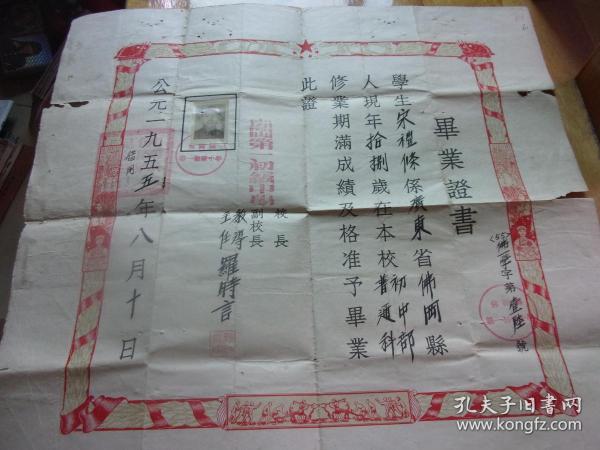 畢業證書
學生宋禮條係廣東省佛岡縣
人現年拾捌歲在本校初中部普通科
修業期滿成績及格准予畢業
此證
校長
副校長
教導主任 羅時言
公元一九五五年八月十日
(55)佛一畢字第壹陸號
孔夫子旧书网
www.kongfz.com